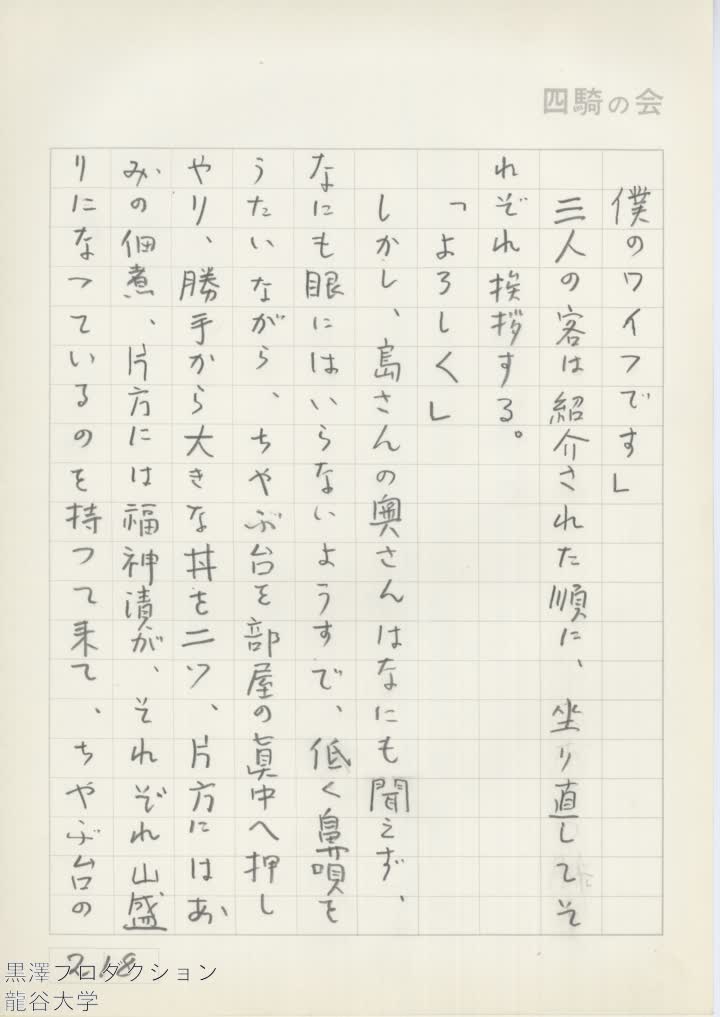 四騎の会
僕のワイフです」
三人の客は紹介された順に、坐り直してそ
れぞれ挨拶する。
「よろしく」
しかし、島さんの奥さんはなにも聞えず、
なにも眼にはいらないようすで、低く鼻唄を
うたいながら、ちやぶ台を部屋の眞中へ押し
やり、勝手から大きな丼を二ツ、片方にはあ
みの佃煮、片方には福神漬が、それぞれ山盛
りになつているのを持つて来て、ちやぶ台の
218
黒澤プロダクション
龍谷大学